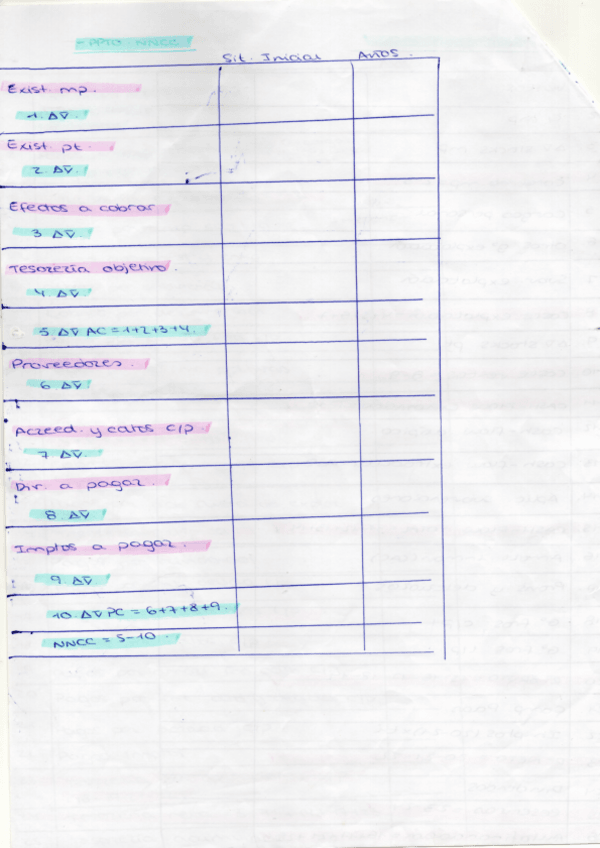 - PPTO NNCC
Sit. Inicial Años.
Exist mp.
1. Δ∇.
Exist pt.
2. Δ∇.
Efectos a cobrar
3 Δ∇.
Tesorería objetivo.
4. Δ∇.
5 Δ∇ AC = 1+2+3+4.
Proveedores.
6. Δ∇.
Acreed. y cptes c/p.
7. Δ∇.
Div. a pagar.
8. Δ∇.
Imptos a pagar.
9. Δ∇
10. Δ∇ PC = 6+7+8+9.
NNCC = 5-10.